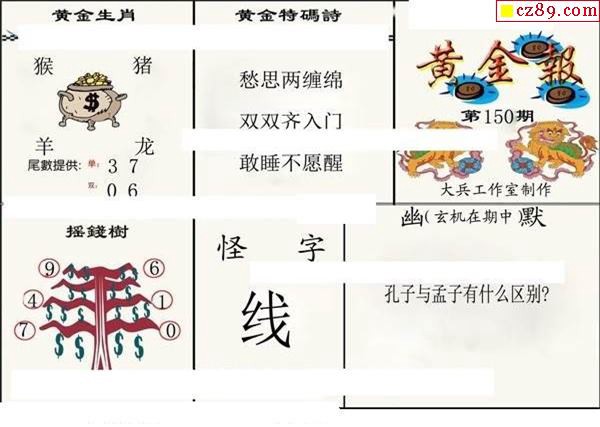 cz89.com
黄金生肖
猴 猪
羊 龙
尾數提供: 单: 3 7
双: 0 6
黄金特碼詩
愁思两缠绵
双双齐入门
敢睡不愿醒
黄金報
第150期
大兵工作室制作
摇錢樹
9 6
4 1
7 0
怪字
线
幽(玄机在期中)默
孔子与孟子有什么区别?